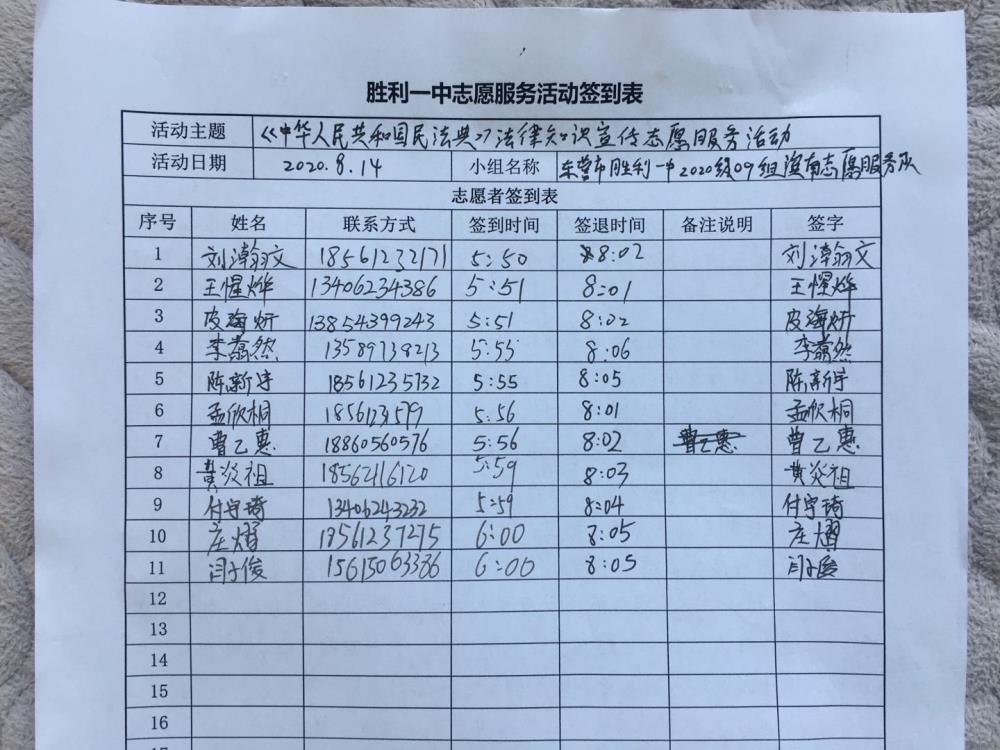 胜利一中志愿服务活动签到表
活动主题 《中华人民共和国民法典》法律知识宣传志愿服务活动
活动日期 2020.8.14 小组名称 东营市胜利一中2020级09组滨南志愿服务队
志愿者签到表
序号 姓名 联系方式 签到时间 签退时间 备注说明 签字
1 刘瀚文 18561232171 5:50 8:02 刘瀚文
2 王惺烨 13406234386 5:51 8:01 王惺烨
3 皮海妍 13854399243 5:51 8:02 皮海妍
4 李蕠然 13589739213 5:55 8:06 李蕠然
5 陈新宇 18561235732 5:55 8:05 陈新宇
6 孟欣桐 1856123579 5:56 8:01 孟欣桐
7 曹乙惠 18860560576 5:56 8:02 曹乙惠 曹乙惠
8 黄炎祖 18562116120 5:59 8:03 黄炎祖
9 付宇琦 13406243232 5:59 8:04 付宇琦
10 庄熠 18561237275 6:00 8:05 庄熠
11 闫子俊 15615063336 6:00 8:05 闫子俊
12
13
14
15
16